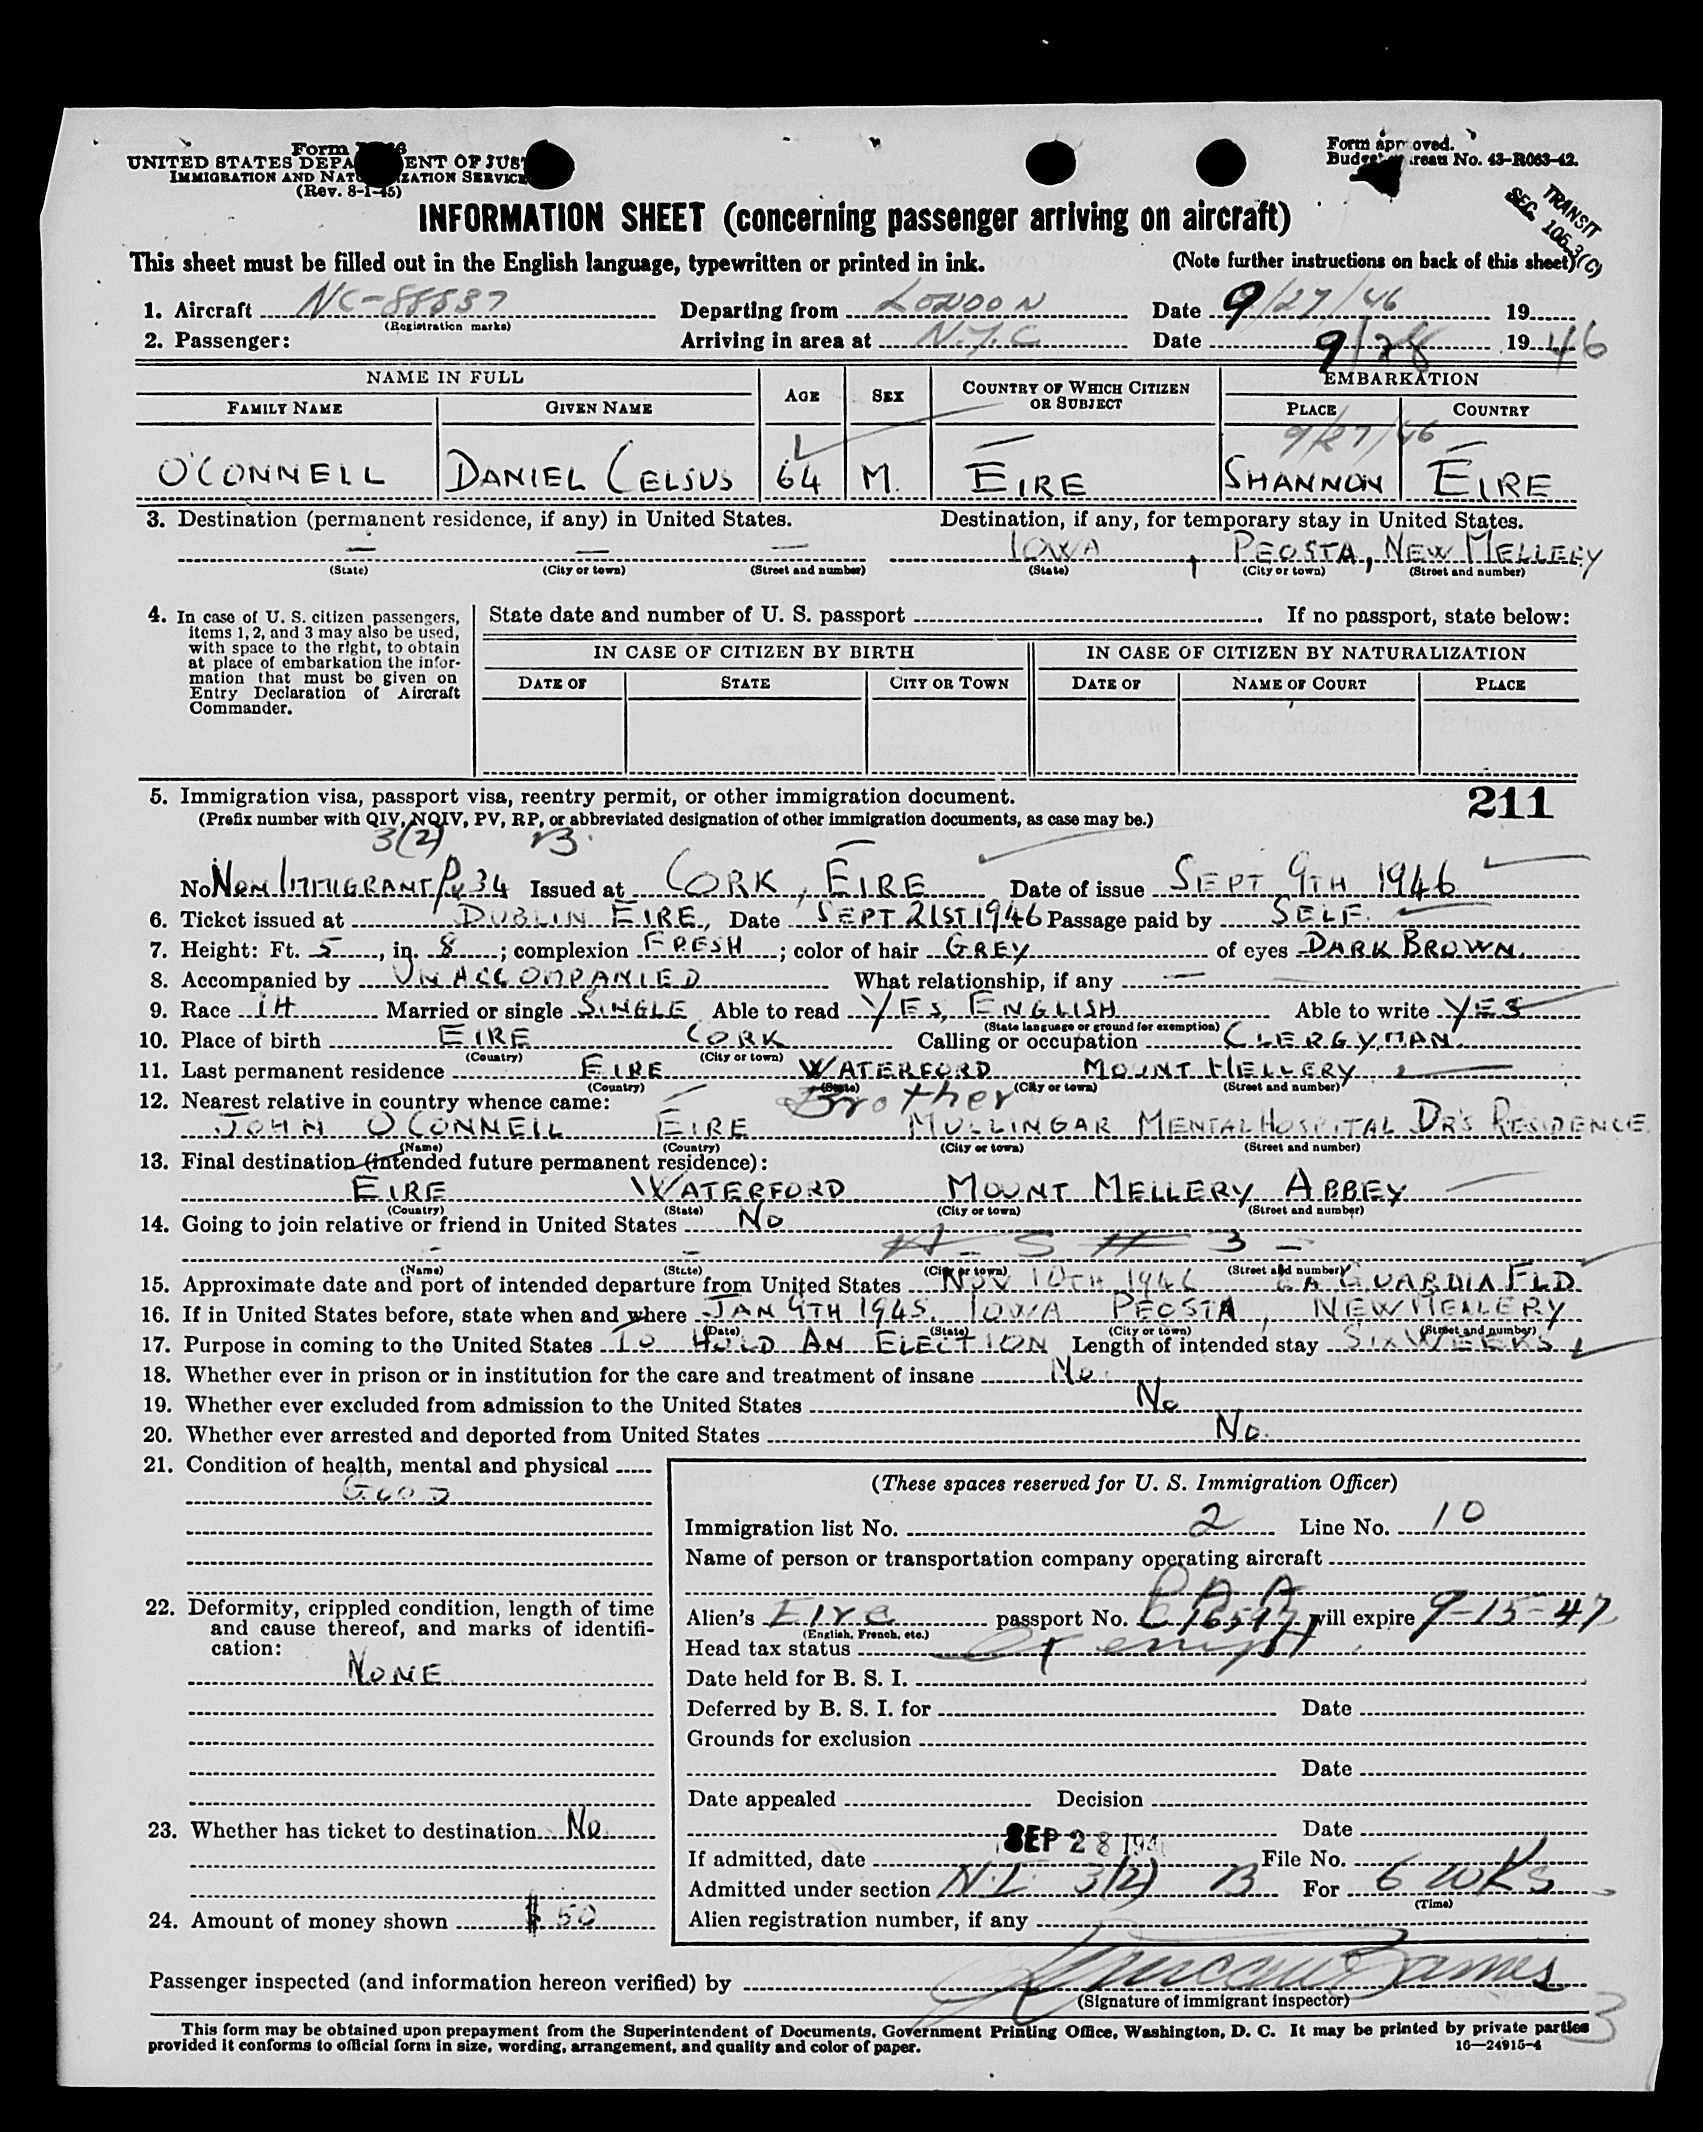 Form
UNITED STATES DEPA ENT OF JUS
IMMIGRATION AND NATU IZATION SERVICE
(Rev. 8-1-45)
Form approved.
Budget reau No. 43-R063-42.
TRANSIT
SEC. 106.3(C)
INFORMATION SHEET (concerning passenger arriving on aircraft)
This sheet must be filled out in the English language, typewritten or printed in ink. (Note further instructions on back of this sheet)
1. Aircraft NC-88837 Departing from LONDON Date 9/27/46 19
(Registration marks)
2. Passenger: Arriving in area at N.Y.C Date 9/28 1946
NAME IN FULL AGE SEX COUNTRY OF WHICH CITIZEN OR SUBJECT EMBARKATION
FAMILY NAME GIVEN NAME PLACE COUNTRY
9/27/46
O'CONNELL DANIEL CELSUS 64 M. EIRE SHANNON EIRE
3. Destination (permanent residence, if any) in United States. Destination, if any, for temporary stay in United States.
— — — IOWA, PEOSTA, NEW MELLERY
(State) (City or town) (Street and number) (State) (City or town) (Street and number)
4. In case of U. S. citizen passengers, items 1, 2, and 3 may also be used, with space to the right, to obtain at place of embarkation the information that must be given on Entry Declaration of Aircraft Commander.
State date and number of U. S. passport If no passport, state below:
IN CASE OF CITIZEN BY BIRTH IN CASE OF CITIZEN BY NATURALIZATION
DATE OF STATE CITY OR TOWN DATE OF NAME OF COURT PLACE
5. Immigration visa, passport visa, reentry permit, or other immigration document. 211
(Prefix number with QIV, NQIV, PV, RP, or abbreviated designation of other immigration documents, as case may be.)
3(2) B.
No NON IMMIGRANT/PV34 Issued at CORK, EIRE Date of issue SEPT 9TH 1946
6. Ticket issued at DUBLIN EIRE, Date SEPT 21ST 1946 Passage paid by SELF.
7. Height: Ft. 5, in. 8; complexion FRESH; color of hair GREY of eyes DARK BROWN.
8. Accompanied by UNACCOMPANIED What relationship, if any —
9. Race IH Married or single SINGLE Able to read YES, ENGLISH Able to write YES
(State language or ground for exemption)
10. Place of birth EIRE CORK Calling or occupation CLERGYMAN.
(Country) (City or town)
11. Last permanent residence EIRE WATERFORD MOUNT MELLERY
(Country) (State) (City or town) (Street and number)
12. Nearest relative in country whence came: Brother
JOHN O'CONNELL EIRE MULLINGAR MENTAL HOSPITAL DR'S RESIDENCE
(Name) (Country) (City or town) (Street and number)
13. Final destination (intended future permanent residence):
EIRE WATERFORD MOUNT MELLERY ABBEY
(Country) (State) (City or town) (Street and number)
14. Going to join relative or friend in United States NO
(Name) (State) (City or town) (Street and number)
15. Approximate date and port of intended departure from United States NOV 10TH 1946 LA GUARDIA FLD.
16. If in United States before, state when and where JAN 4TH 1945, IOWA PEOSTA, NEW MELLERY
(Date) (State) (City or town) (Street and number)
17. Purpose in coming to the United States TO HOLD AN ELECTION Length of intended stay SIX WEEKS
18. Whether ever in prison or in institution for the care and treatment of insane NO.
19. Whether ever excluded from admission to the United States NO
20. Whether ever arrested and deported from United States NO.
21. Condition of health, mental and physical
GOOD
22. Deformity, crippled condition, length of time and cause thereof, and marks of identification:
NONE
23. Whether has ticket to destination NO
24. Amount of money shown $50
(These spaces reserved for U. S. Immigration Officer)
Immigration list No. 2 Line No. 10
Name of person or transportation company operating aircraft
P A A
Alien's Eire passport No. C 16597 will expire 9-15-47
(English, French, etc.)
Head tax status exempt
Date held for B. S. I.
Deferred by B. S. I. for Date
Grounds for exclusion
Date
Date appealed Decision
Date
If admitted, date SEP 28 194 File No.
Admitted under section N.I. 3(2) B For 6 wks
(Time)
Alien registration number, if any
Passenger inspected (and information hereon verified) by
(Signature of immigrant inspector) 3
This form may be obtained upon prepayment from the Superintendent of Documents, Government Printing Office, Washington, D. C. It may be printed by private parties
provided it conforms to official form in size, wording, arrangement, and quality and color of paper. 16—24915-4